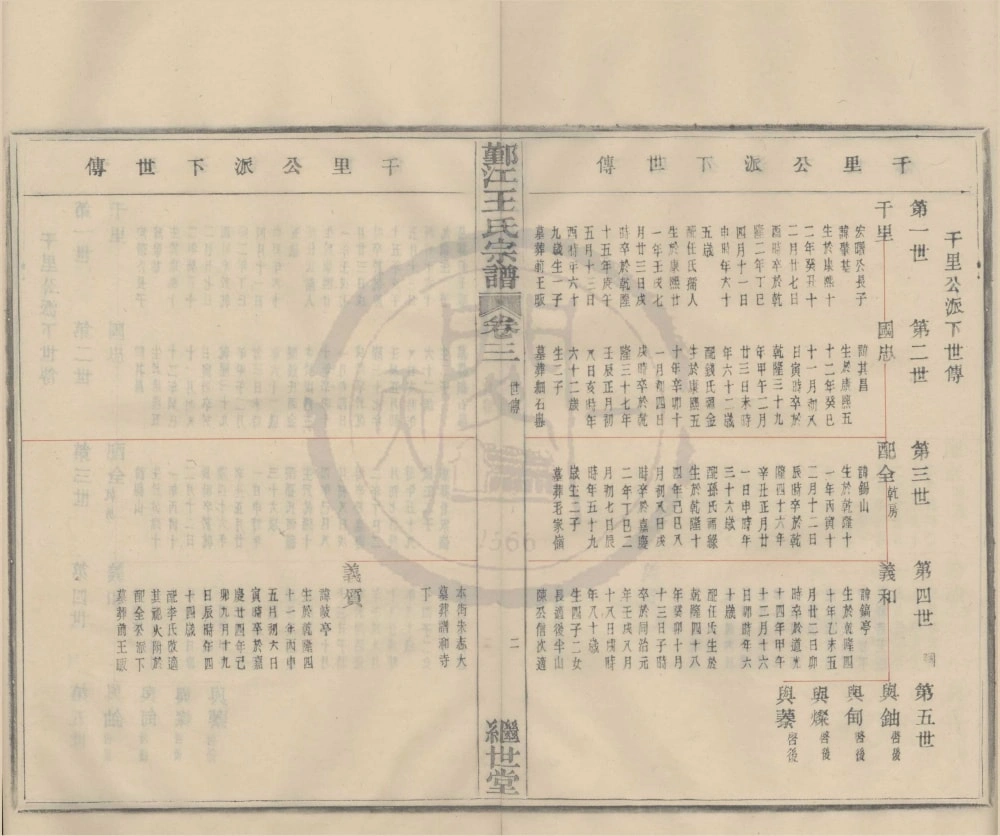 千里公派下世傳
千里公派下世傳
第一世
第二世
第三世
第四世
第五世
千里
宏曒公長子
諱肇基
生於康熙十
二年癸丑十
二月廿七日
酉時卒於乾
隆二年丁巳
四月十一日
申時年六十
五歲
配任氏孺人
生於康熙廿
一年壬戌七
月廿三日戌
時卒於乾隆
十五年庚午
五月十三日
酉時年六十
九歲生一子
墓葬前王畈
國忠
諱其昌
生於康熙五
十二年癸巳
十一月初八
日寅時卒於
乾隆三十九
年甲午二月
廿三日未時
年六十二歲
配錢氏
生於康熙五
十年辛卯十
一月初四日
戌時卒於乾
隆三十七年
壬辰正月初
八日亥時年
六十二歲
生二子
墓葬
配全 乾房
諱錫山
生於乾隆十
一年丙寅十
二月十二日
辰時卒於乾
隆四十六年
辛丑正月廿
一日申時年
三十六歲
配孫氏
生於乾隆十
四年己巳八
月初八日戌
時卒於嘉慶
二年丁巳二
月初七日辰
時年五十九
歲生二子
墓葬毛家嶺
義和
諱鎬亭
生於乾隆四
十年乙未五
月廿二日卯
時卒於道光
十四年甲午
十二月十六
日卯時年六
十歲
配任氏生於
乾隆四十八
年癸卯十月
十三日子時
卒於同治元
年壬戌八月
十八日戌時
年八十歲
生四子二女
長適後牟山
陳公信次適
與鈾 啓後
與甸 啓後
與燦 啓後
與蓁 啓後
鄞江王氏宗譜
卷三
世傳
二
繼世堂
千里公派下世傳
本街朱志大
墓葬調和寺
下
義質
諱岐亭
生於乾隆四
十一年丙申
五月初六日
寅時卒於嘉
慶廿四年己
卯九月十九
日辰時年四
十四歲
配李氏改適
其祀火附於
配全公派下
墓葬前王畈
1566